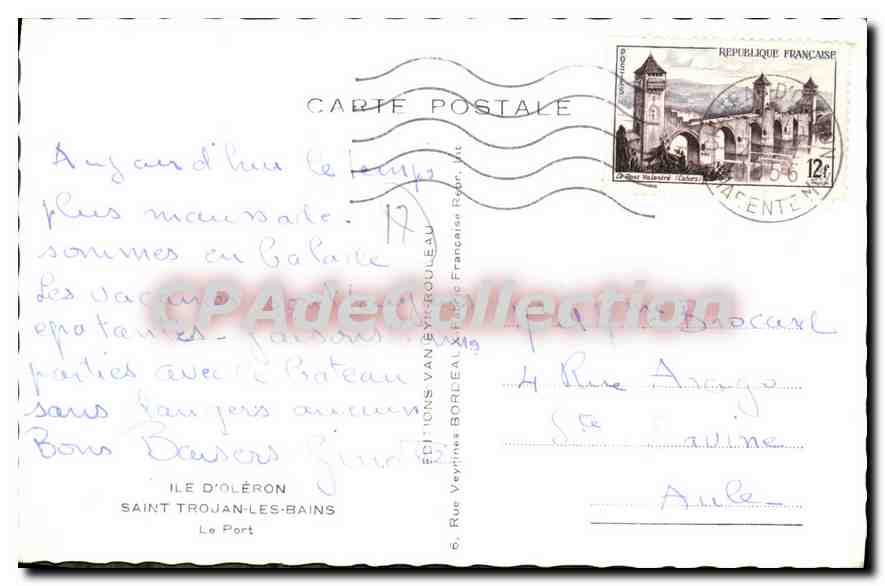 REPUBLIQUE FRANÇAISE
POSTES
Le Pont Valentré (Cahors)
12F
CARTE POSTALE
Aujourd'hui le temps
plus maussade.
sommes en balade
Les vacances
epatantes. faisons
parties avec bateau
sans dangers aucun
Bons Baisers
17
ILE D'OLÉRON
SAINT TROJAN-LES-BAINS
Le Port
EDITIONS VAN EYK-ROULEAU
6, Rue Veyrines BORDEAUX Fabric. Française Repr. Int
CPAdeCollection
Brocard
4 Rue Arago
Ste Savine
Aube